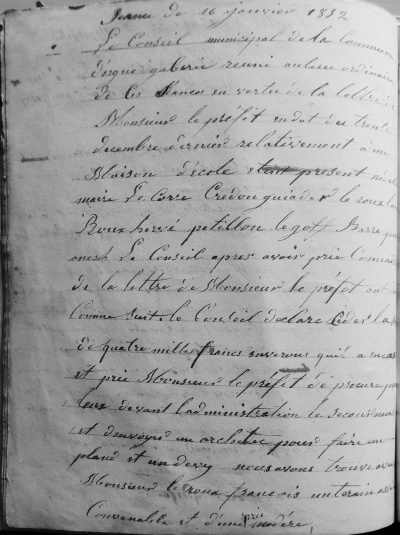 Séance du 16 janvier 1852
Le Conseil municipal de la Commune
d'ergue gaberic reuni au lieu ordinaire
de ces séances en vertu de la lettre de
Monsieur le préfét en dat du trente
decembre dernier relativement a une
Maison d'école etant present
maire Le Corre Credou guiader le roux
Roux hervé petillon le goff Barre
Le Conseil apres avoir prie Connai
de la lettre de Monsieur le préfet ont
Comme Suit le Conseil déclare Ceder la
de quatre mille francs environs qu'il a
et prie Monsieur le préfét de procure
devant l'administration le Secour
et d'envoyer un architec pour faire un
pland et un devy nous avons trouvé
Monsieur le roux francois un terain
Convenable et d'une prie modéré,